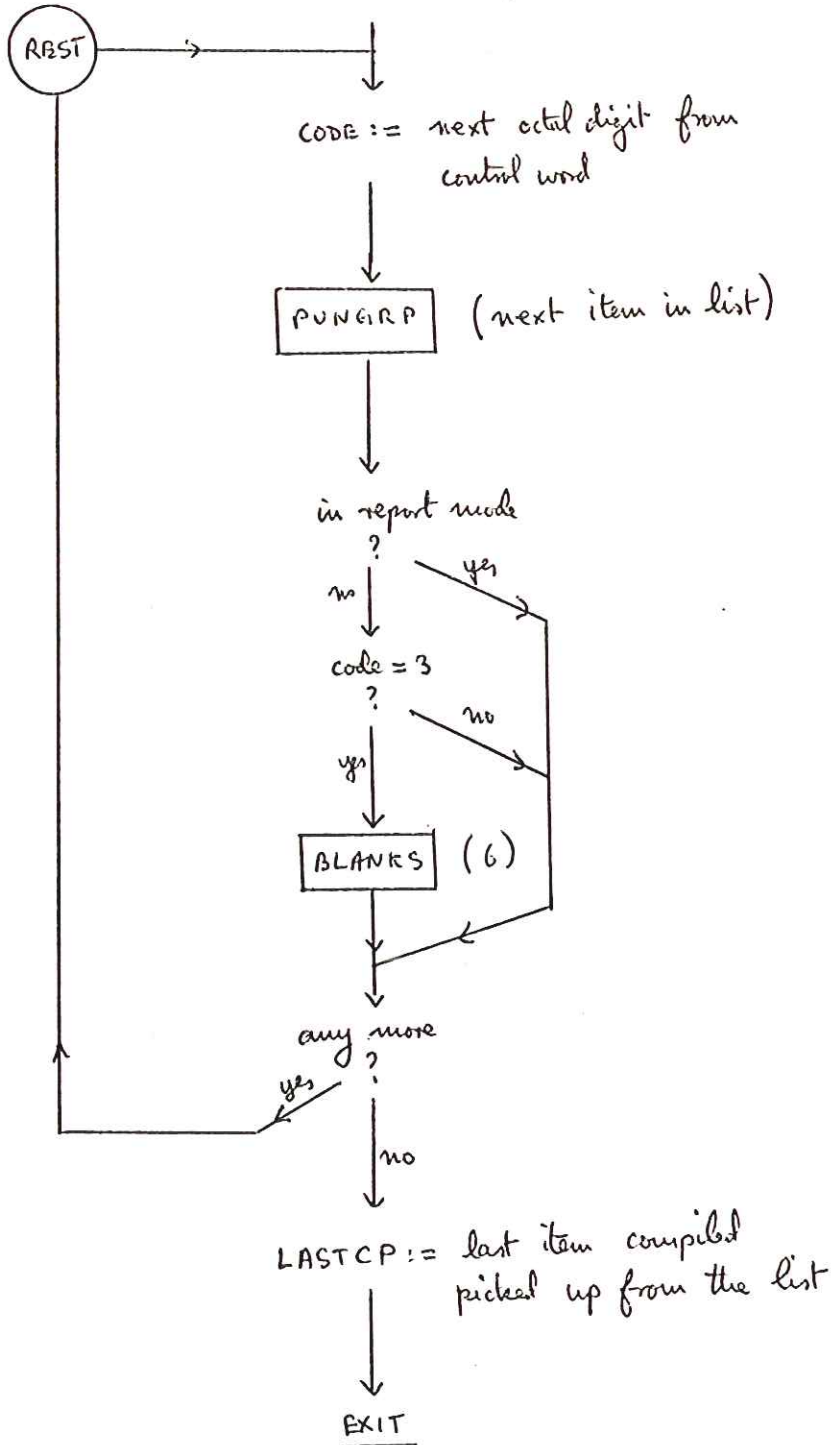 REST
CODE := next octal digit from
control word
PUNGRP (next item in list)
in report mode
?
yes
no
code = 3
?
no
yes
BLANKS (6)
any more
?
yes
no
LASTCP := last item compiled
picked up from the list
EXIT